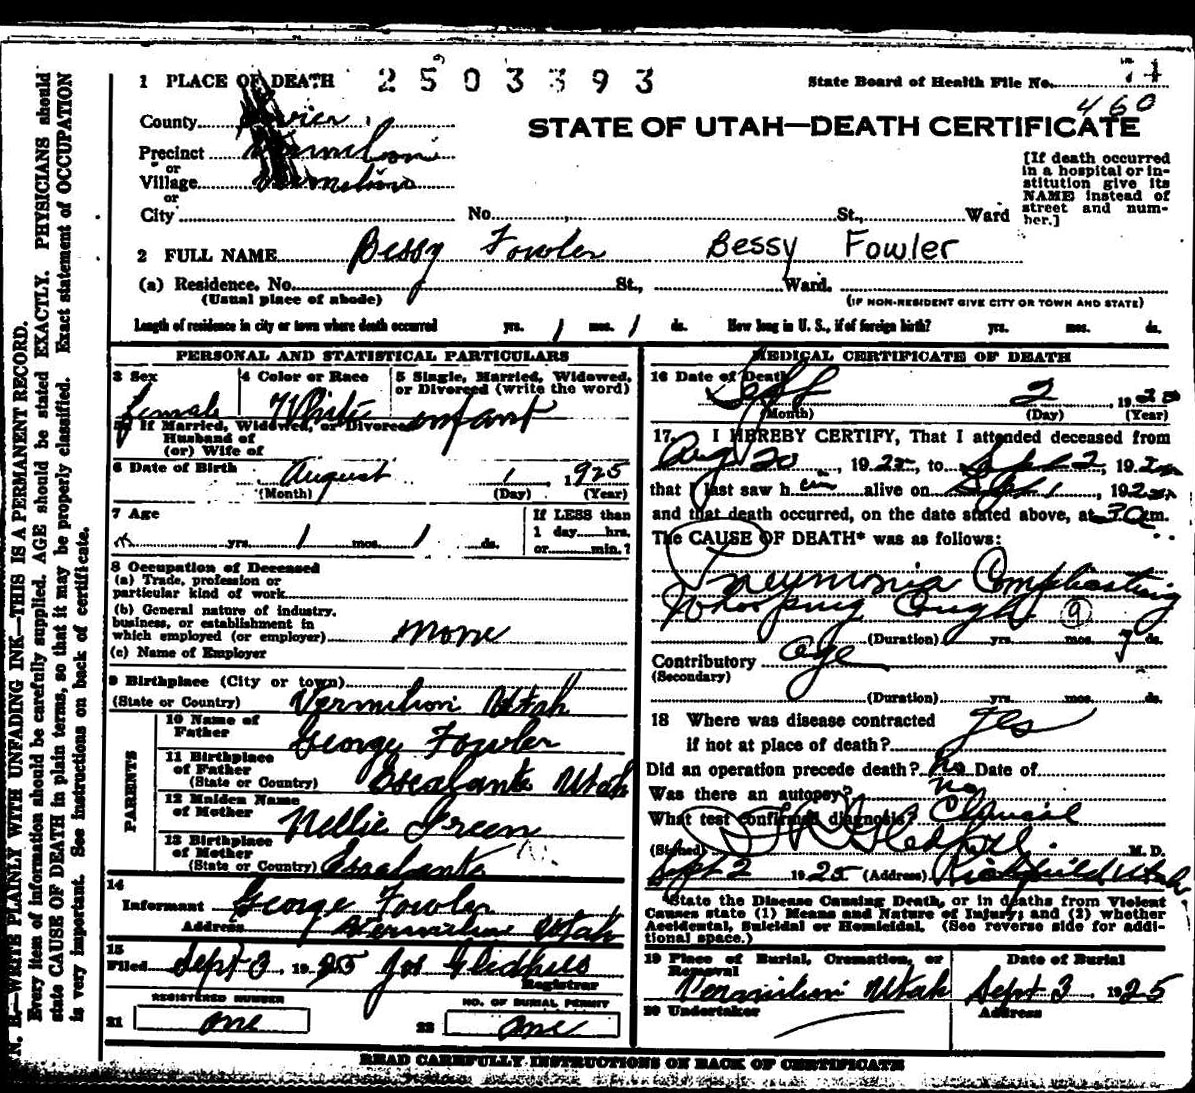 1 PLACE OF DEATH 2503393 State Board of Health File No. 74
460
County Sevier
STATE OF UTAH—DEATH CERTIFICATE
Precinct Vermilion
or
Village Vermilion
or
City No. St., Ward
[If death occurred
in a hospital or in-
stitution give its
NAME instead of
street and num-
ber.]
2 FULL NAME Bessy Fowler Bessy Fowler
(a) Residence. No. St., Ward.
(Usual place of abode) (IF NON-RESIDENT GIVE CITY OR TOWN AND STATE)
Length of residence in city or town where death occurred yrs. 1 mos. 1 ds. How long in U. S., if of foreign birth? yrs. mos. ds.
PERSONAL AND STATISTICAL PARTICULARS
3 Sex 4 Color or Race 5 Single, Married, Widowed,
or Divorced (write the word)
Female White infant
If Married, Widowed, or Divorced
Husband of
(or) Wife of
6 Date of Birth August 1 1925
(Month) (Day) (Year)
7 Age If LESS than
1 day hrs.
x yrs. 1 mos. 1 ds. or min.?
8 Occupation of Deceased
(a) Trade, profession or
particular kind of work
(b) General nature of industry,
business, or establishment in
which employed (or employer) none
(c) Name of Employer
9 Birthplace (City or town)
(State or Country) Vermilion Utah
PARENTS
10 Name of
Father George Fowler
11 Birthplace
of Father
(State or Country) Escalante Utah
12 Maiden Name
of Mother Nellie Green
13 Birthplace
of Mother
(State or Country) Escalante
14
Informant George Fowler
Address Vermilion Utah
15
Filed Sept 3 1925 Jos Gledhill
Registrar
REGISTERED NUMBER NO. OF BURIAL PERMIT
21 one 22 one
MEDICAL CERTIFICATE OF DEATH
16 Date of Death Sept 2 1925
(Month) (Day) (Year)
17. I HEREBY CERTIFY, That I attended deceased from
Aug 20, 1925, to Sept 2, 1925
that I last saw h alive on Sept 1, 1925
and that death occurred, on the date stated above, at m.
The CAUSE OF DEATH* was as follows:
Pneymonia Complicating
Whooping Cough 9
(Duration) yrs. mos. 7 ds.
Contributory age
(Secondary)
(Duration) yrs. mos. ds.
18 Where was disease contracted
if not at place of death? yes
Did an operation precede death? no Date of
Was there an autopsy? no
What test confirmed diagnosis? Clinical
(Signed) Gledhill M. D.
Sept 2 1925 (Address) Richfield Utah
*State the Disease Causing Death, or in deaths from Violent
Causes state (1) Means and Nature of Injury; and (2) whether
Accidental, Suicidal or Homicidal. (See reverse side for addi-
tional space.)
19 Place of Burial, Cremation, or
Removal Date of Burial
Vermilion Utah Sept 3 1925
20 Undertaker Address
READ CAREFULLY INSTRUCTIONS ON BACK OF CERTIFICATE
N. B.—WRITE PLAINLY WITH UNFADING INK—THIS IS A PERMANENT RECORD.
Every item of information should be carefully supplied. AGE should be stated EXACTLY. PHYSICIANS should
state CAUSE OF DEATH in plain terms, so that it may be properly classified. Exact statement of OCCUPATION
is very important. See instructions on back of certificate.